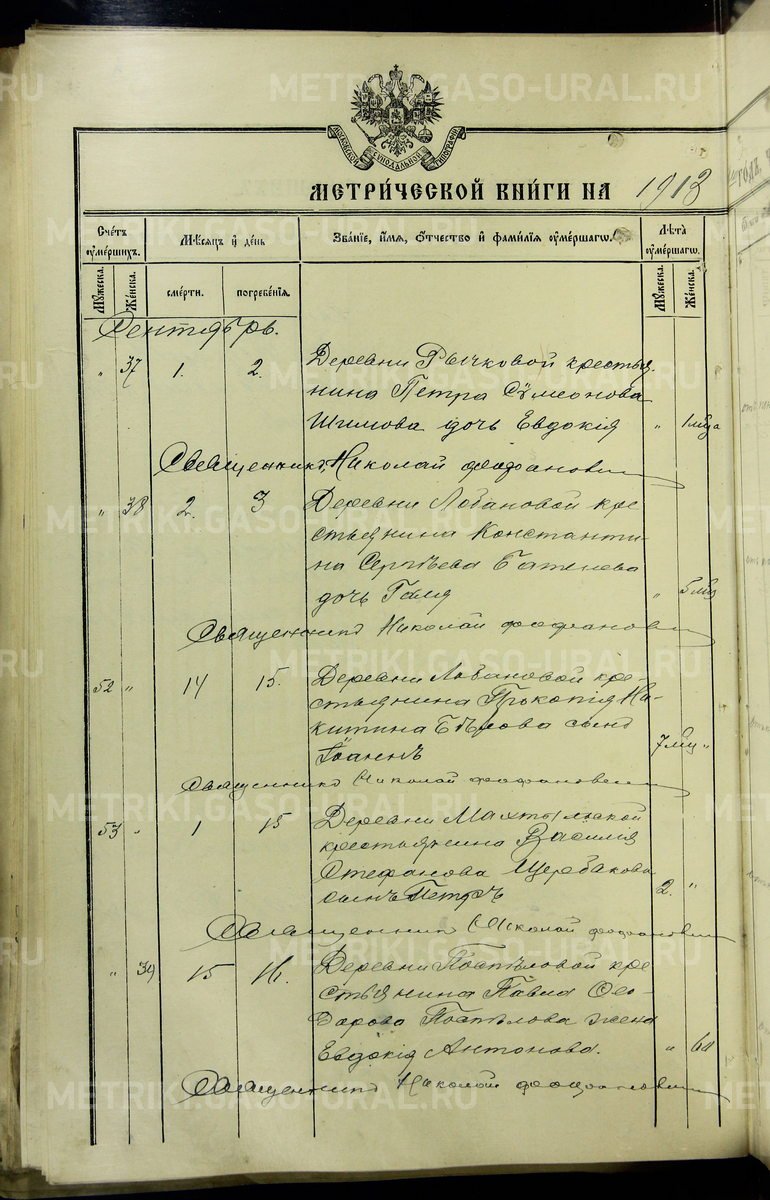 METRIKI.GASO-URAL.RU
МОСКОВСКОЙ СѴНОДАЛЬНОЙ ТИПОГРАФІИ
МЕТРИ́ЧЕСКОЙ КНИ́ГИ НА 1913
Сче́тъ ᲂумершихъ. Мѣсяцъ и де́нь Зва́ніе, и́мя, ѻ́тчество и фамилія ᲂуме́ршагѡ. Лѣта ᲂуме́ршагѡ.
Мꙋжеска. Же́нска. сме́рти. погребе́нія. Мꙋжеска. Же́нска.
Сентябрь.
„ 37 1. 2. Деревни Рычковой крестья-
нина Петра Сѵмеонова
Шимова дочь Евдокія „ 1 мѣца
Священникъ Николай Феофановъ
„ 38 2. 3 Деревни Лобановой кре
стьянина Константи-
на Сергѣева Батенева
дочь Галя „ 5 мѣц
Священникъ Николай Феофановъ
52 „ 14 15. Деревни Лобановой кре-
стьянина Прокопія Ни-
китина Бѣлова сынъ
Іоаннъ 7 мѣц „
Священникъ Николай Феофановъ
53 „ 1 15 Деревни Махтыльской
крестьянина Василія
Стефанова Щербакова
сынъ Петръ 2. „
Священникъ Николай Феофановъ
„ 39 15 16. Деревни Поспѣловой кре
стьянина Павла Ѳео-
дорова Поспѣлова жена
Евдокія Антонова. „ 60
Священникъ Николай Феофановъ